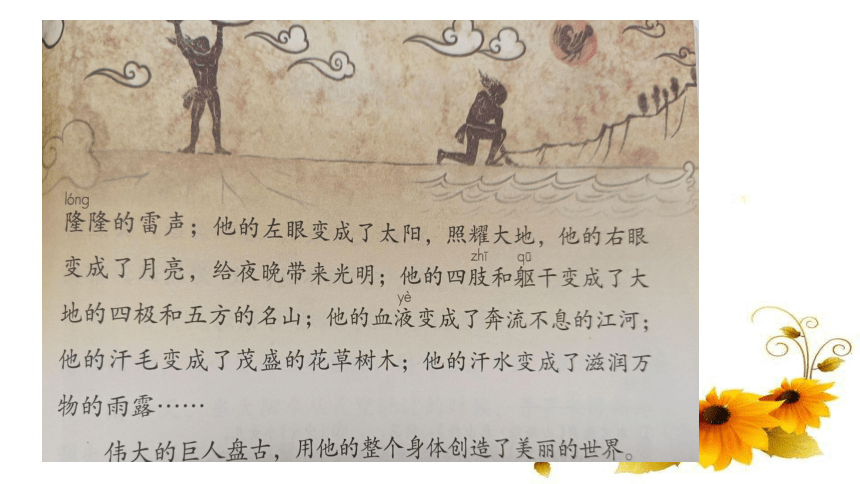 lóng
隆隆的雷声；他的左眼变成了太阳，照耀大地，他的右眼
变成了月亮，给夜晚带来光明；他的四肢和躯干变成了大
zhī qū
地的四极和五方的名山；他的血液变成了奔流不息的江河；
yè
他的汗毛变成了茂盛的花草树木；他的汗水变成了滋润万
物的雨露……
伟大的巨人盘古，用他的整个身体创造了美丽的世界。